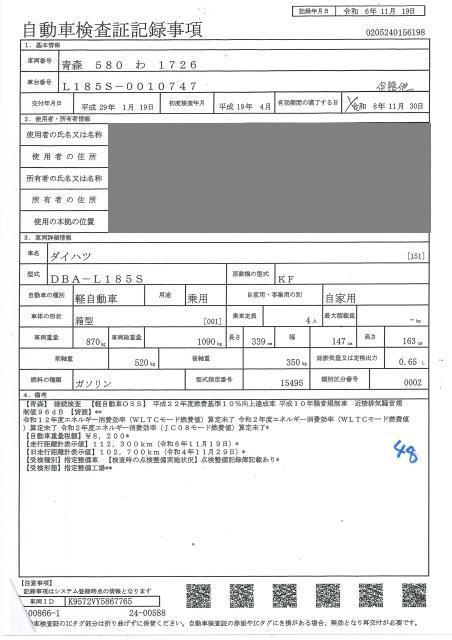 記録年月日 令和 6年11月19日
自動車検査証記録事項
0205240156198
1. 基本情報
車両番号 青森 580 わ 1726
車台番号 L185S-0010747
交付年月日 平成29年 1月19日 初度検査年月 平成19年 4月 有効期間の満了する日 令和 8年11月30日
2. 使用者・所有者情報
使用者の氏名又は名称
使用者の住所
所有者の氏名又は名称
所有者の住所
使用の本拠の位置
3. 車両詳細情報
車名 ダイハツ [151]
型式 DBA-L185S 原動機の型式 KF
自動車の種別 軽自動車 用途 乗用 自家用・事業用の別 自家用
車体の形状 箱型 [001] 乗車定員 4人 最大積載量 -kg
車両重量 870kg 車両総重量 1090kg 長さ 339cm 幅 147cm 高さ 163cm
前軸重 520kg 後軸重 350kg 総排気量又は定格出力 0.65 L
燃料の種類 ガソリン 型式指定番号 15495 類別区分番号 0002
4. 備考
【青森】 継続検査 【軽自動車OSS】 平成22年度燃費基準10%向上達成車 平成10年騒音規制車 近接排気騒音規
制値96dB 【貨渡】**
令和12年度エネルギー消費効率(WLTCモード燃費値)算定未了 令和2年度エネルギー消費効率(WLTCモード燃費値
)算定未了 令和2年度エネルギー消費効率(JC08モード燃費値)算定未了*
【自動車重量税額】¥8,200*
【走行距離計表示値】112,300km(令和6年11月19日)*
【旧走行距離計表示値】102,700km(令和4年11月29日)*
【受検種別】指定整備車 【検査時の点検整備実施状況】点検整備記録簿記載あり*
【受検形態】指定整備工場**
48
【注意事項】
記録事項はシステム登録時点の情報となります
車両ID K9572VY5867765
00866-1 24-00588
検査証のICタグ部分は折り曲げずに保管ください。自動車検査証の券面やICタグにき損がある場合、無効となり再交付が必要です。